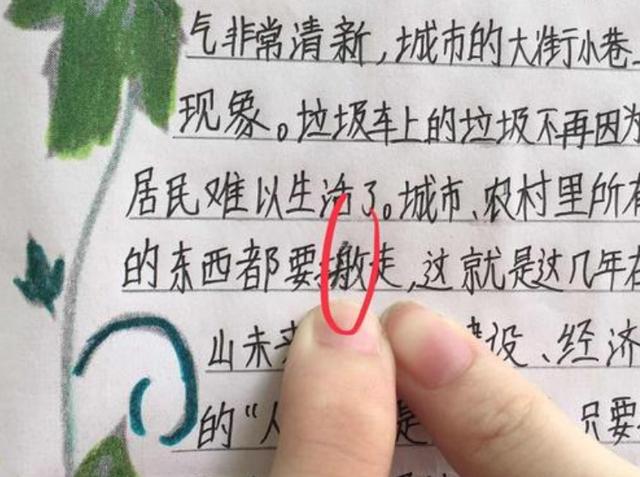 气非常清新，城市的大街小巷
现象。垃圾车上的垃圾不再因为
居民难以生活了。城市、农村里所有
的东西都要走，这就是这几年在
山未 设、经济
的“人 是 只要